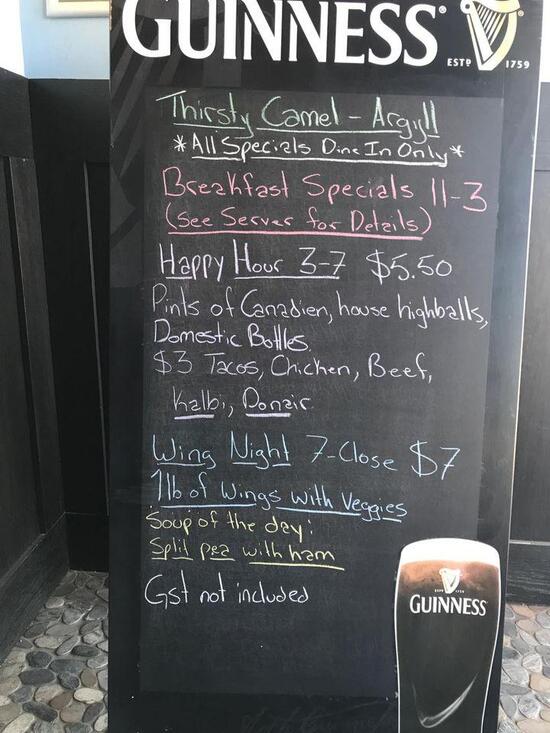 GUINNESS
ESTD 1759
Thirsty Camel - Argyll
*All Specials Dine In Only*
Breakfast Specials 11-3
(See Server for Details)
Happy Hour 3-7 $5.50
Pints of Canadien, house highballs,
Domestic Bottles.
$3 Tacos, Chicken, Beef,
Kalbi, Donair
Wing Night 7-Close $7
1lb of Wings with Veggies
Soup of the day:
Split pea with ham
Gst not included
GUINNESS